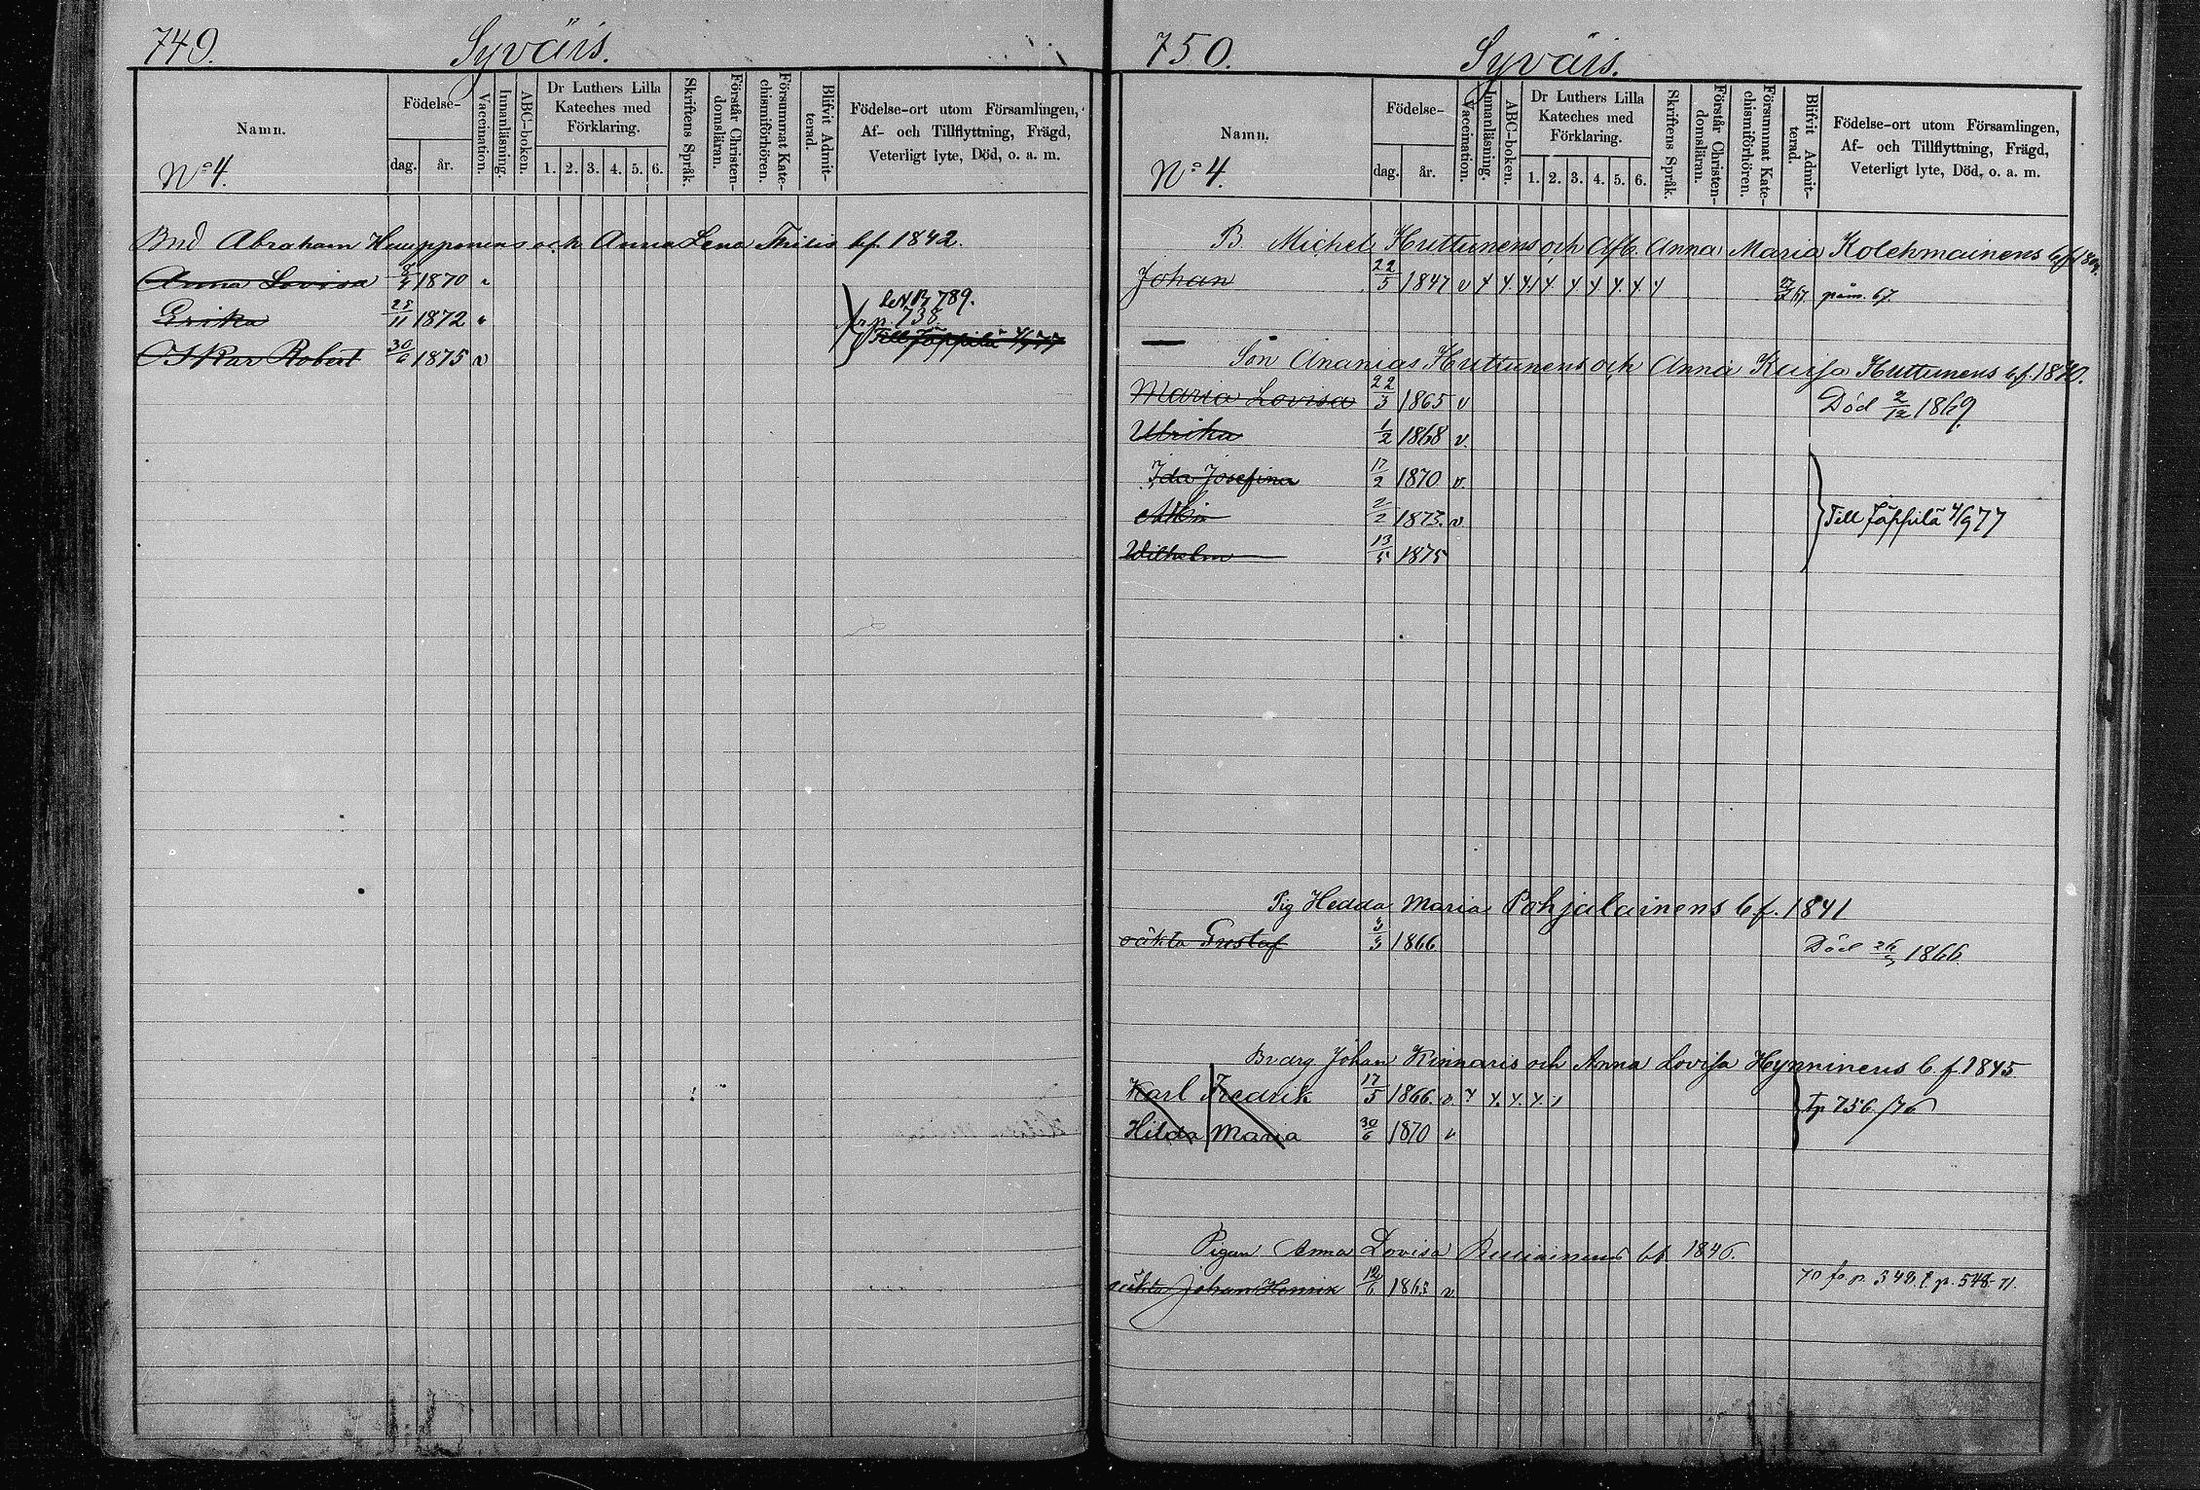 749.
Syväis.
Namn.
Födelse-
dag.
år.
Vaccination.
Innanläsning.
ABC-boken.
Dr Luthers Lilla
Kateches med
Förklaring.
1. 2. 3. 4. 5. 6.
Skriftens Språk.
Förstår Christen-
domsläran.
Försummat Kate-
chismiförhören.
Blifvit Admit-
terad.
Födelse-ort utom Församlingen,
Af- och Tillflyttning, Frägd,
Veterligt lyte, Död, o. a. m.
No 4.
Abraham Huupponens och Anna Lena bf. 1842.
Anna Lovisa 1870
789.
Erika 25/11 1872
p. 738
Oskar Robert 30/6 1875 v
Till Jäppilä 4/9 77
750.
Syväis.
Namn.
Födelse-
dag.
år.
Vaccination.
Innanläsning.
ABC-boken.
Dr Luthers Lilla
Kateches med
Förklaring.
1. 2. 3. 4. 5. 6.
Skriftens Språk.
Förstår Christen-
domsläran.
Försummat Kate-
chismiförhören.
Blifvit Admit-
terad.
Födelse-ort utom Församlingen,
Af- och Tillflyttning, Frägd,
Veterligt lyte, Död, o. a. m.
No 4.
B. Michel Huttunens och Anna Maria Kolehmainens
Johan 22/5 1847 v 67.
Son Ananias Huttunens och Anna Huttunens bf. 1840.
Maria Lovisa 22/3 1865 v Död 2/12 1869
Ulrika 1/2 1868 v.
Ida Josefina 17/2 1870 v.
2/2 1873. v
Till Jäppilä 4/9 77
Wilhelm 13/5 1875
Pig Hedda Maria Pohjalainens bf. 1841
oäkta Gustaf 1866 Död 1866.
Johan Kinnaris och Anna Lovisa Hynninens b.f. 1845
Karl Fredrik 17/5 1866. v.
Tp 756
Hilda Maria 30/6 1870 v
Pigan Anna Lovisa bf. 1846.
oäkta Johan Henrik 12/6 v. p. 548 71.